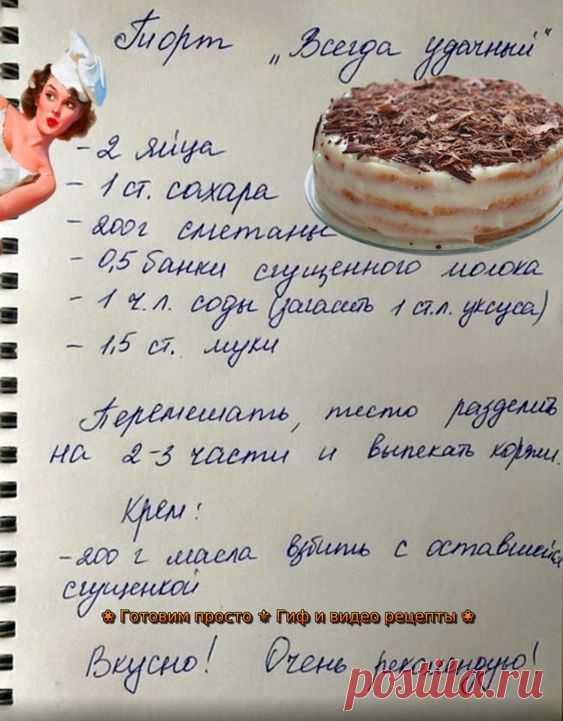 Тиорт „Всегда удачный"
- 2 яйца
- 1 ст. сахара
- 200г сметаны
- 0,5 банки сгущенного молока
- 1 ч.л. соды (загасить 1 ст.л. уксуса)
- 1,5 ст. муки
Перемешать, тесто разделить
на 2-3 части и выпекать коржи.
Крем:
- 200 г масла взбить с оставшейся
сгущенкой
Готовим просто Гиф и видео рецепты
Вкусно! Очень рекомендую!
postila.ru